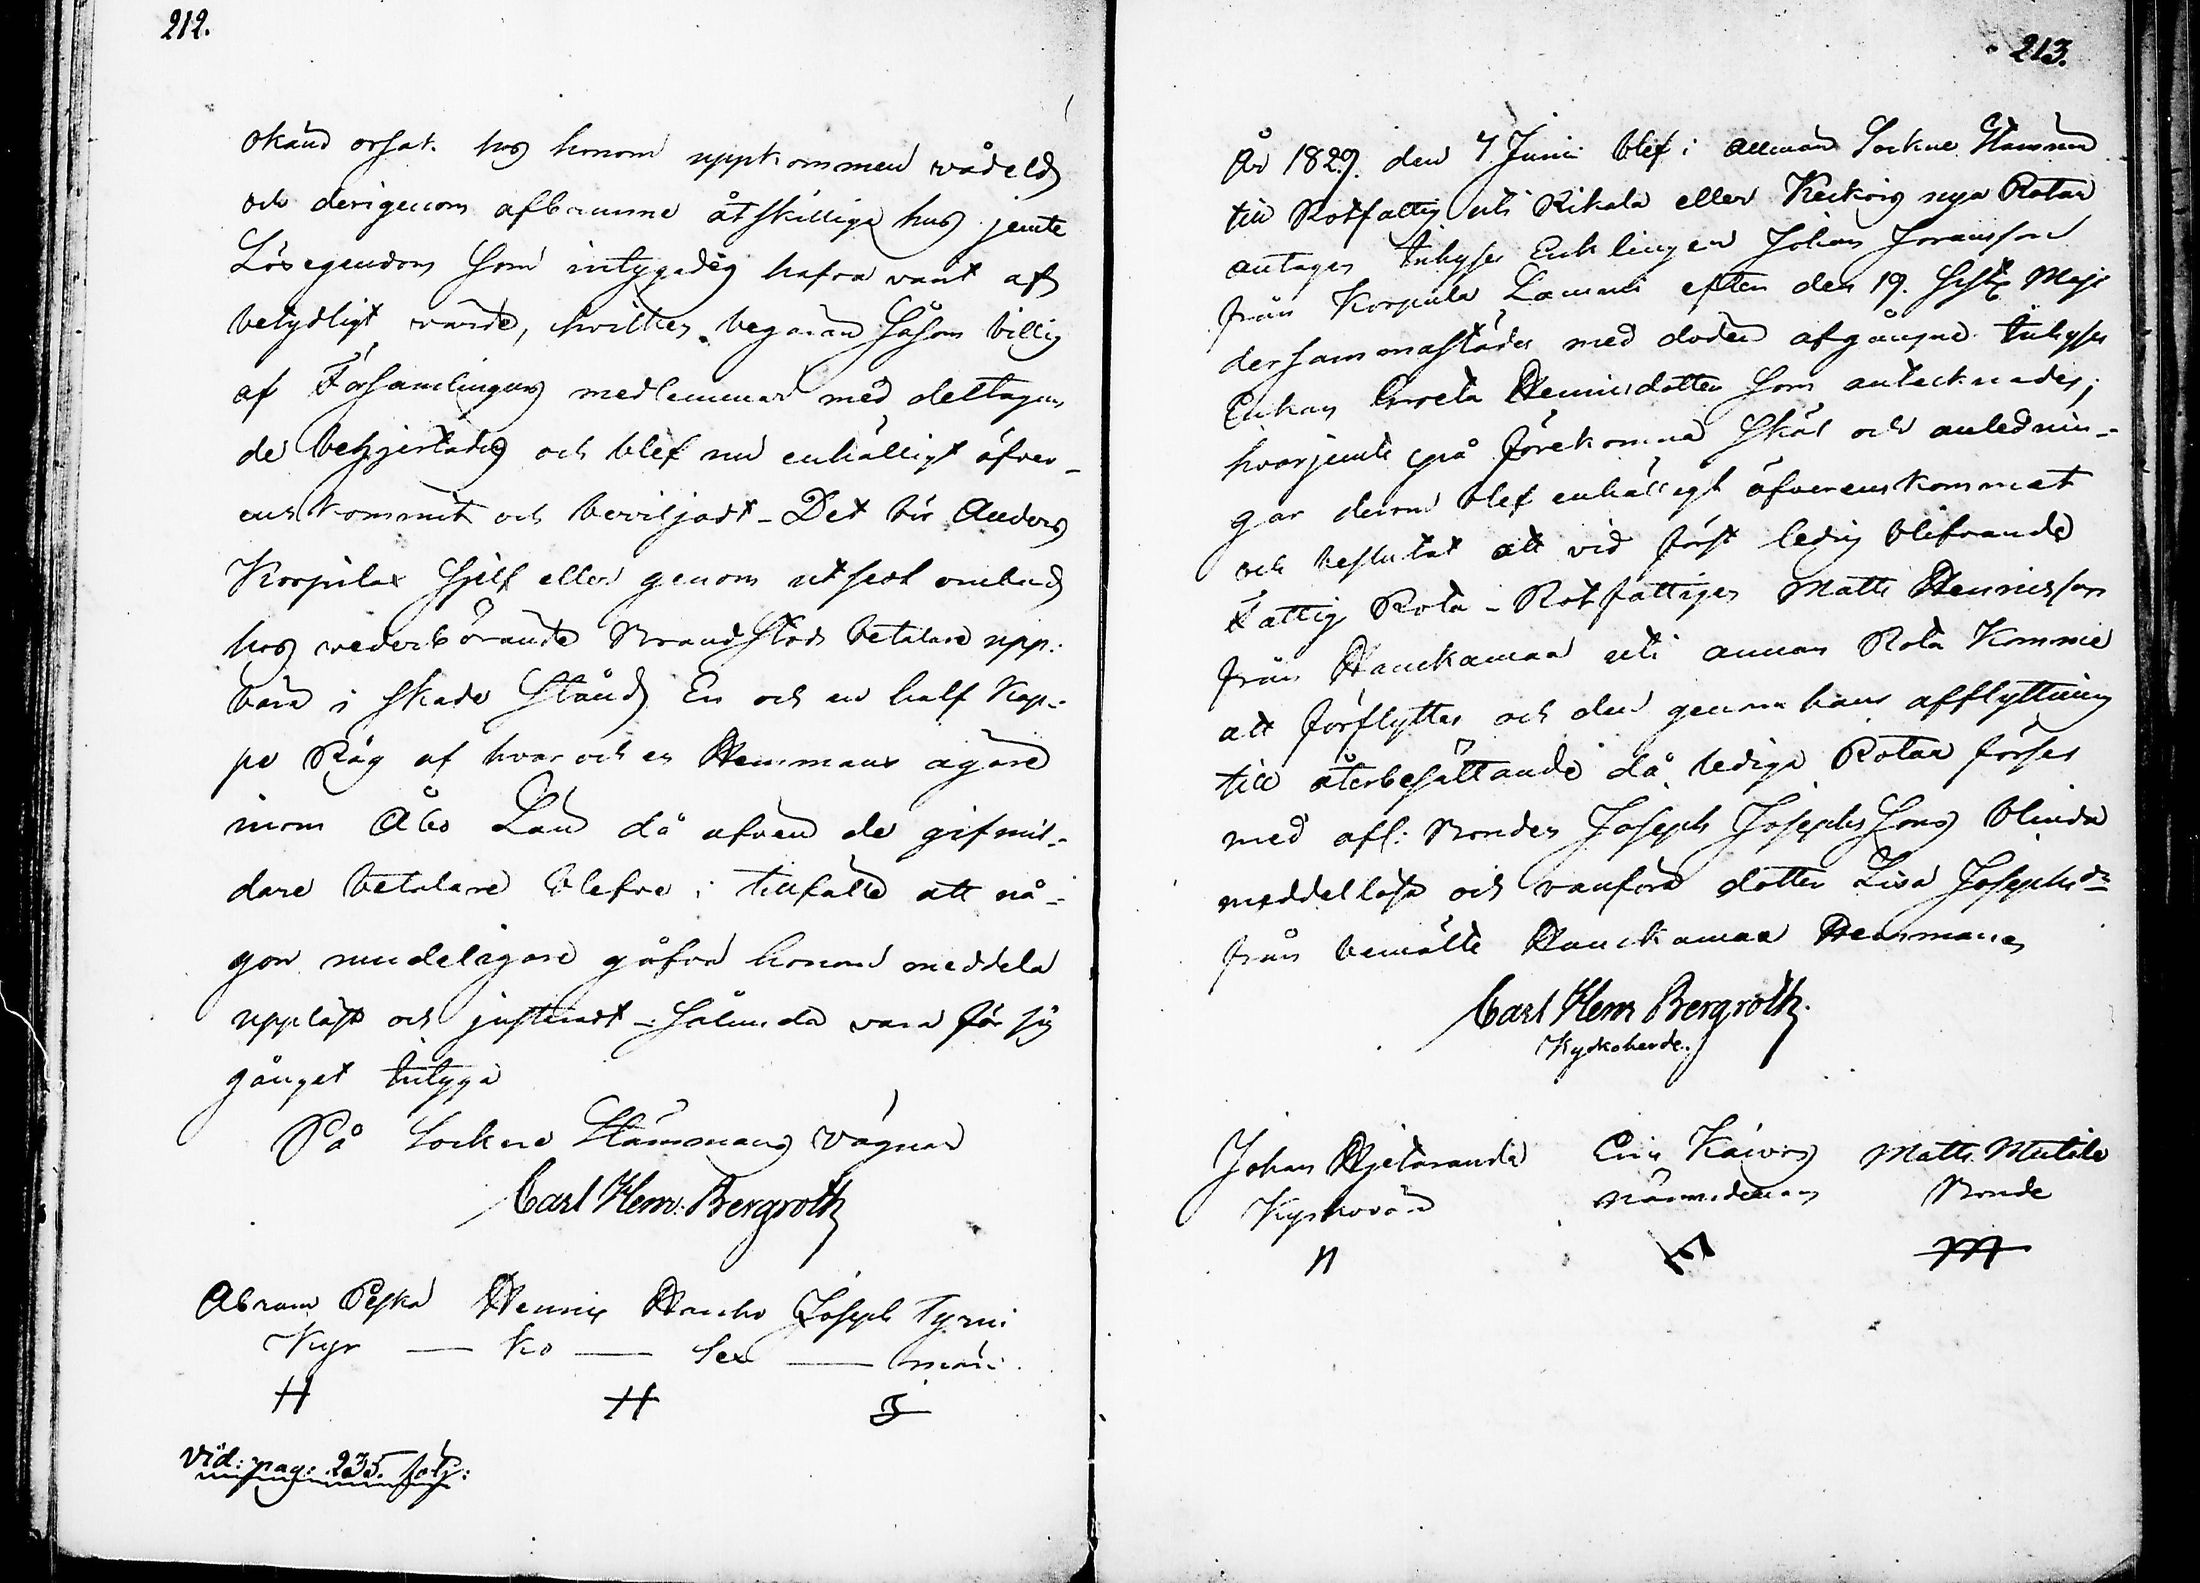 212.
okänd orsak hos honom uppkommen vådeld
och derigenom afbrunne åtskillige hus jemte
Lösegendom som intygades hafva varit af
betydligt värde, hvilken begäran såsom billig
af Församlingens medlemmar med deltagan
de behjertades och blef nu enhälligt öfver-
ens kommit och beviljadt - Det bör Anders
Korpilax sjelf eller genom utsedt ombud
hos vederbörande Brandstods betalare upp-
bära i skade stånd En och en half Kap-
pe Råg af hvar och en Hemmans ägare
inom Åbo Län då äfven de gifmil-
dare betalare blefve i tillfälle att nå-
gon ymdeligare gåfva honom meddela
uppläst och justeradt - Sålunda vara för sig
gånget intyga
På Sockne Stämmans vägnar
Carl Henr. Bergroth
Abram Peska Henrix Hancko Joseph Tyrni
Kyr — ko — sex — män.
H H J
Vid: pag: 235. följ:
213.
År 1829. den 7 Junii blef i allmän Sockne Stämma
till Rotfattig uti Rikala eller Keckois nya Rotar
antagen Inhyses Enklingen Johan Joransson
från Korpula Lammi efter den 19. sistl. Maji
dersammastädes med döden afgångne Inhyses
Enkan Greta Henricsdotter som antecknades;
hvarjemte på förekomna skäl och anlednin-
gar derom blef enhälligt öfverenskommet
och beslutat att vid först ledig blifvande
Fattig Rota - Rotfattigen Matts Henricsson
från Hanckamaa uti annan Rota Komme
att förflyttas och den genom hans afflyttning
till återbesättande då lediga Rotar förses
med afl: Bonden Joseph Josephssons blinda
meddellösa och vanföra dotter Lisa Josephsdr
från bemälte Hanckamaa Hemmanen
Carl Henr Bergroth.
Kyrkoherde.
Johan Hjetaranda Eric Käivis Matts Mutila
Kyrkovärd Nämndeman Bonde
H E M